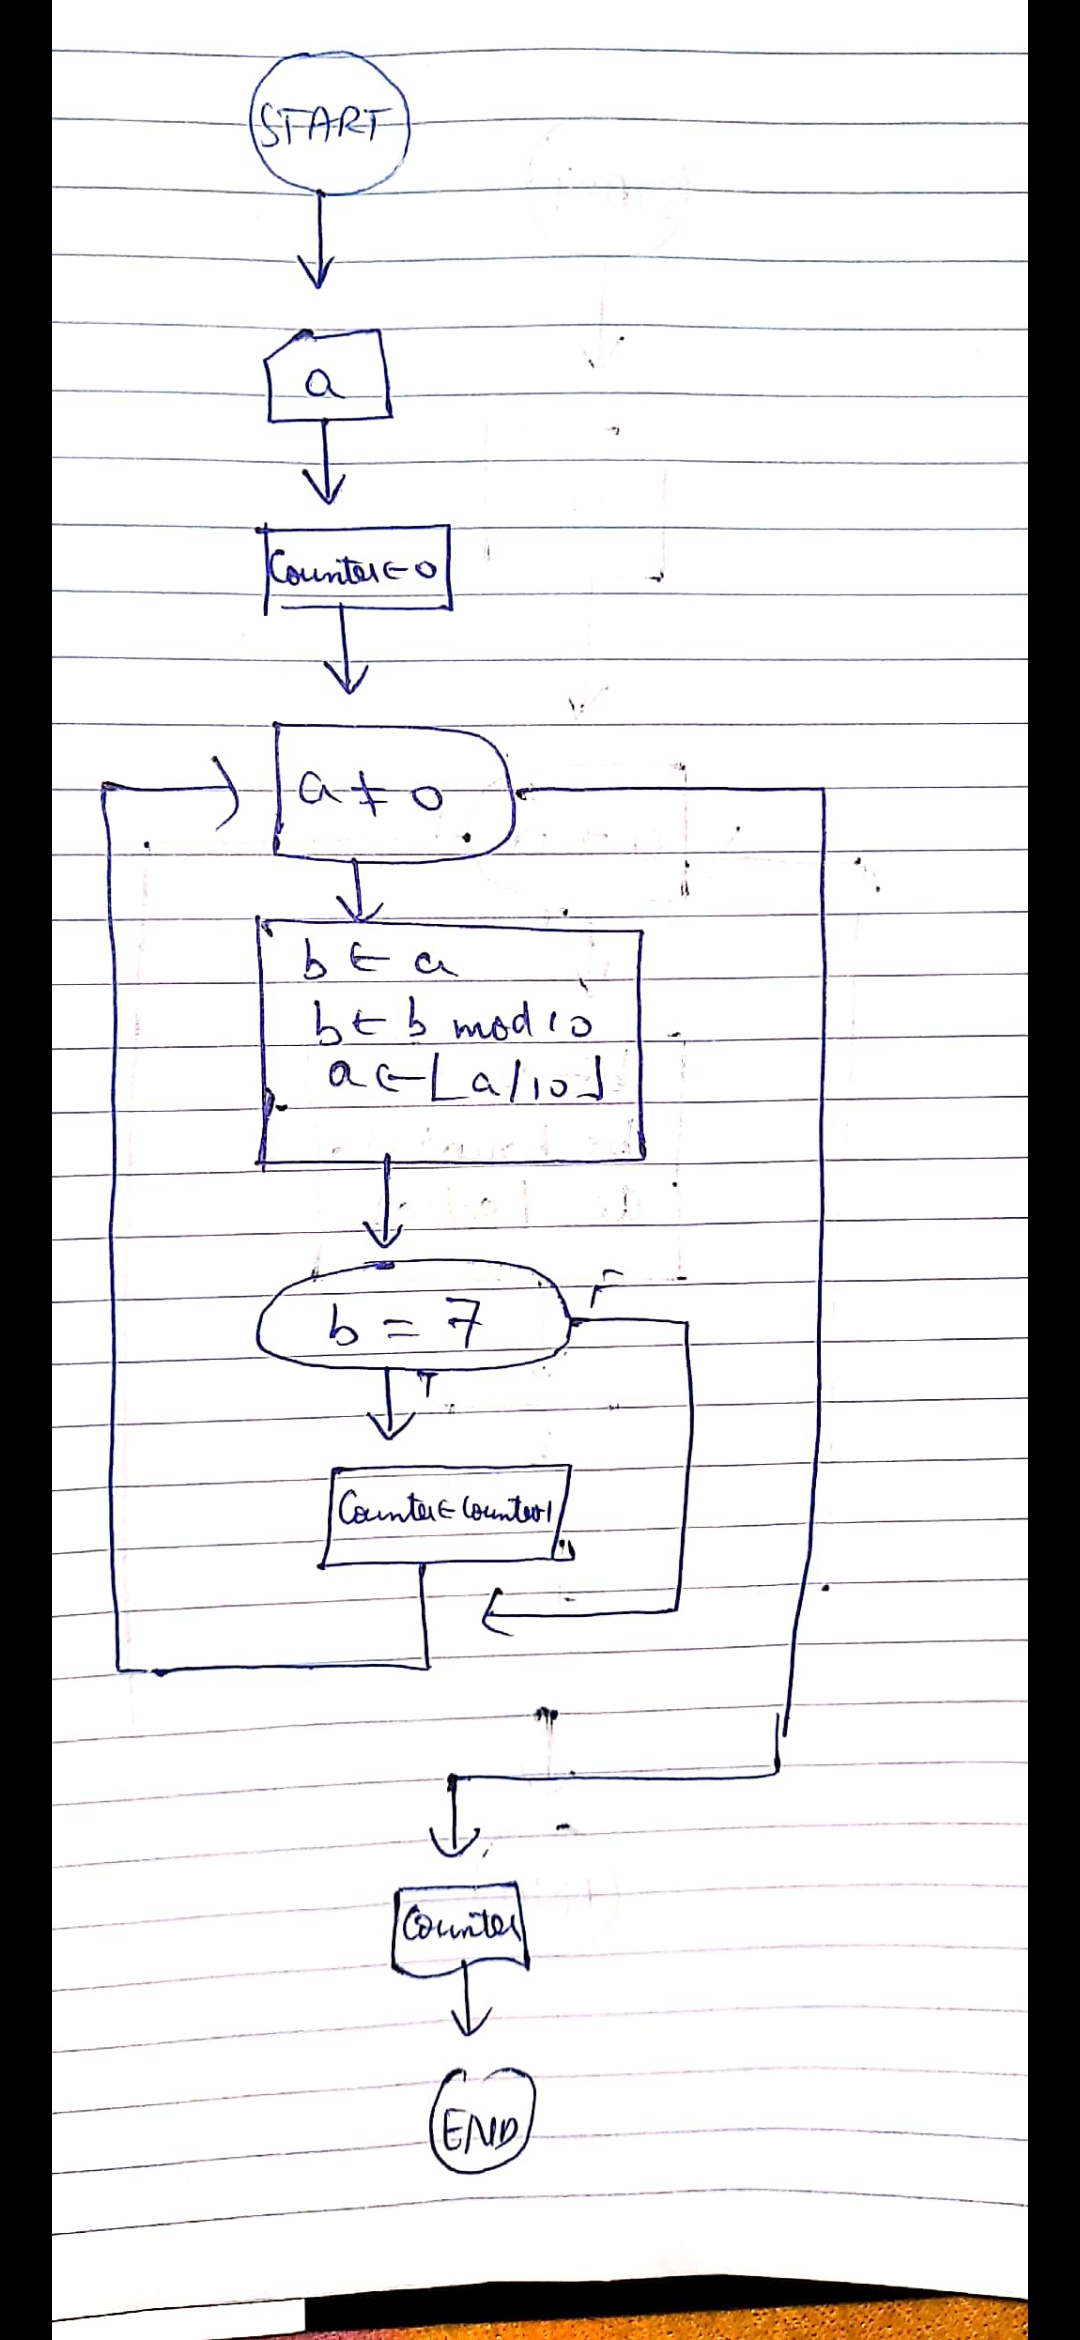 START
a
Counter ← 0
a ≠ 0
b ← a
b ← b mod 10
a ← ⌊a/10⌋
b = 7
F
T
Counter ← Counter+1
Counter
END